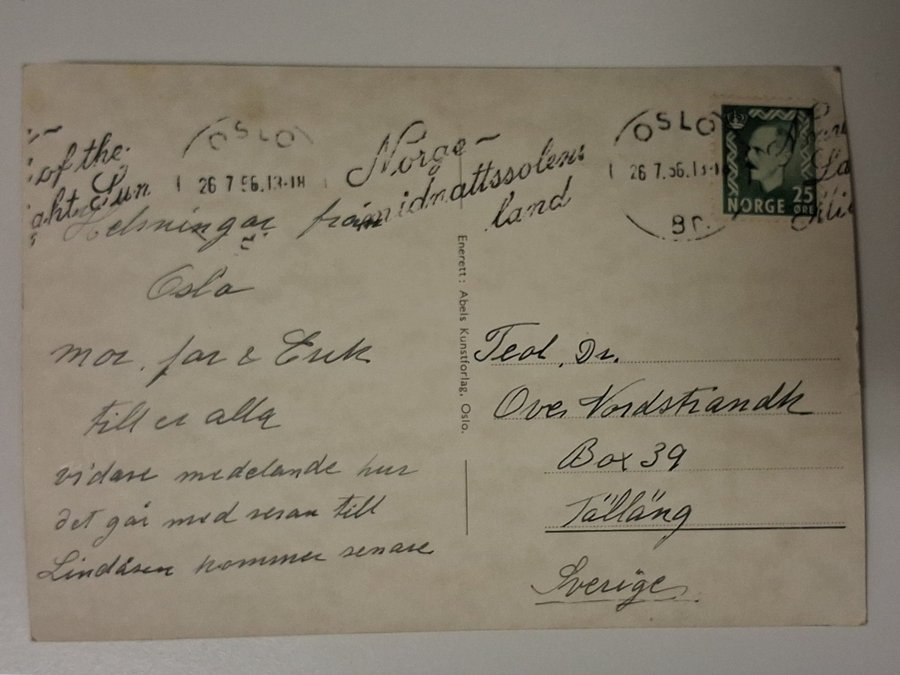 of the
Sun
OSLO
26 7.56.13-18
Norge-
idrettssolens
land
OSLO
26 7.56.13-18
Br.
NORGE 25
ØRE
Helsningar från
Oslo
mor, far & Erik
till er alla
vidare medelande hur
det går med resan till
Lindåsen kommer senare
Enerett: Abels Kunstforlag, Oslo.
Teol. Dr.
Ove Nordstrandh
Box 39
Tälläng
Sverige